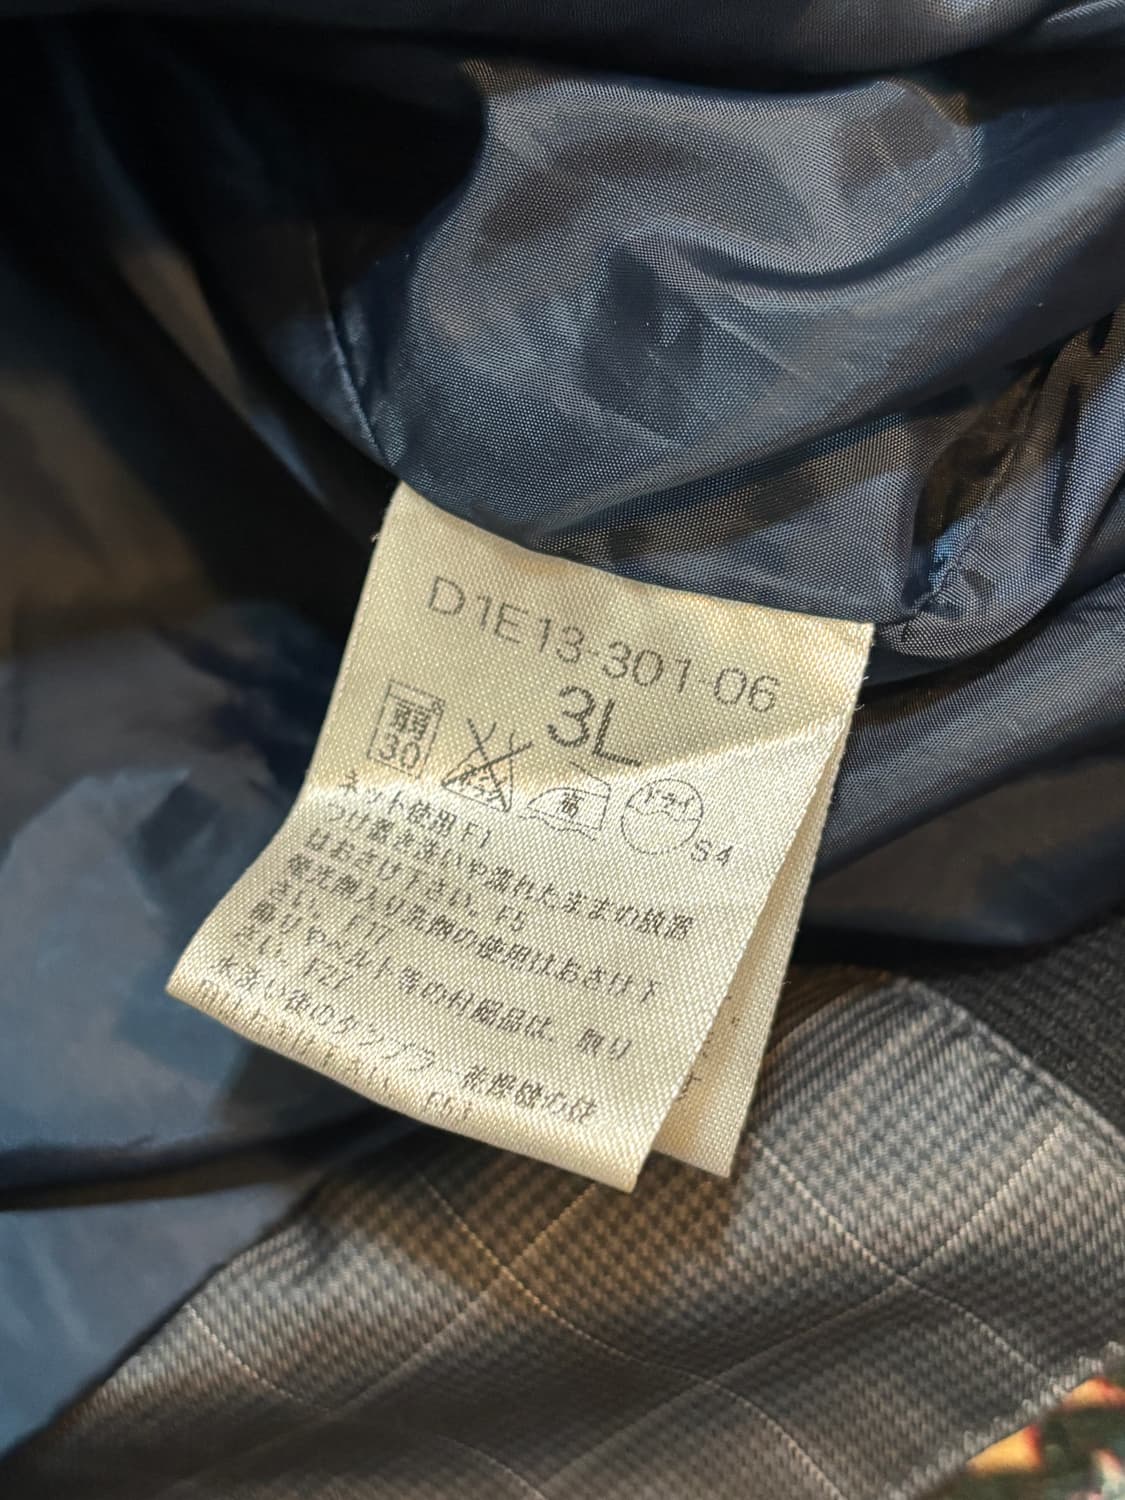 D1E13-301-06
3L
弱
30
エンソ
サラシ
低
ドライ
S4
ネット使用 F1
つけ置き洗いや濡れたままの放置
はおさけ下さい。F5
蛍光剤入り洗剤の使用はおさけ下
さい。F17
飾りやベルト等の付属品は、取り
さい。F27
水洗い後のタンブラー乾燥機の使